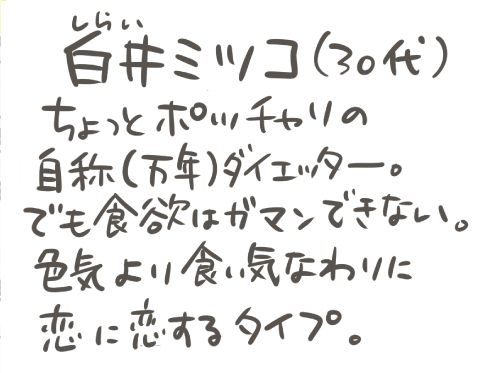 しらい
白井ミツコ(30代)
ちょっとポッチャリの
自称(万年)ダイエッター。
でも食欲はガマンできない。
色気より食い気なわりに
恋に恋するタイプ。